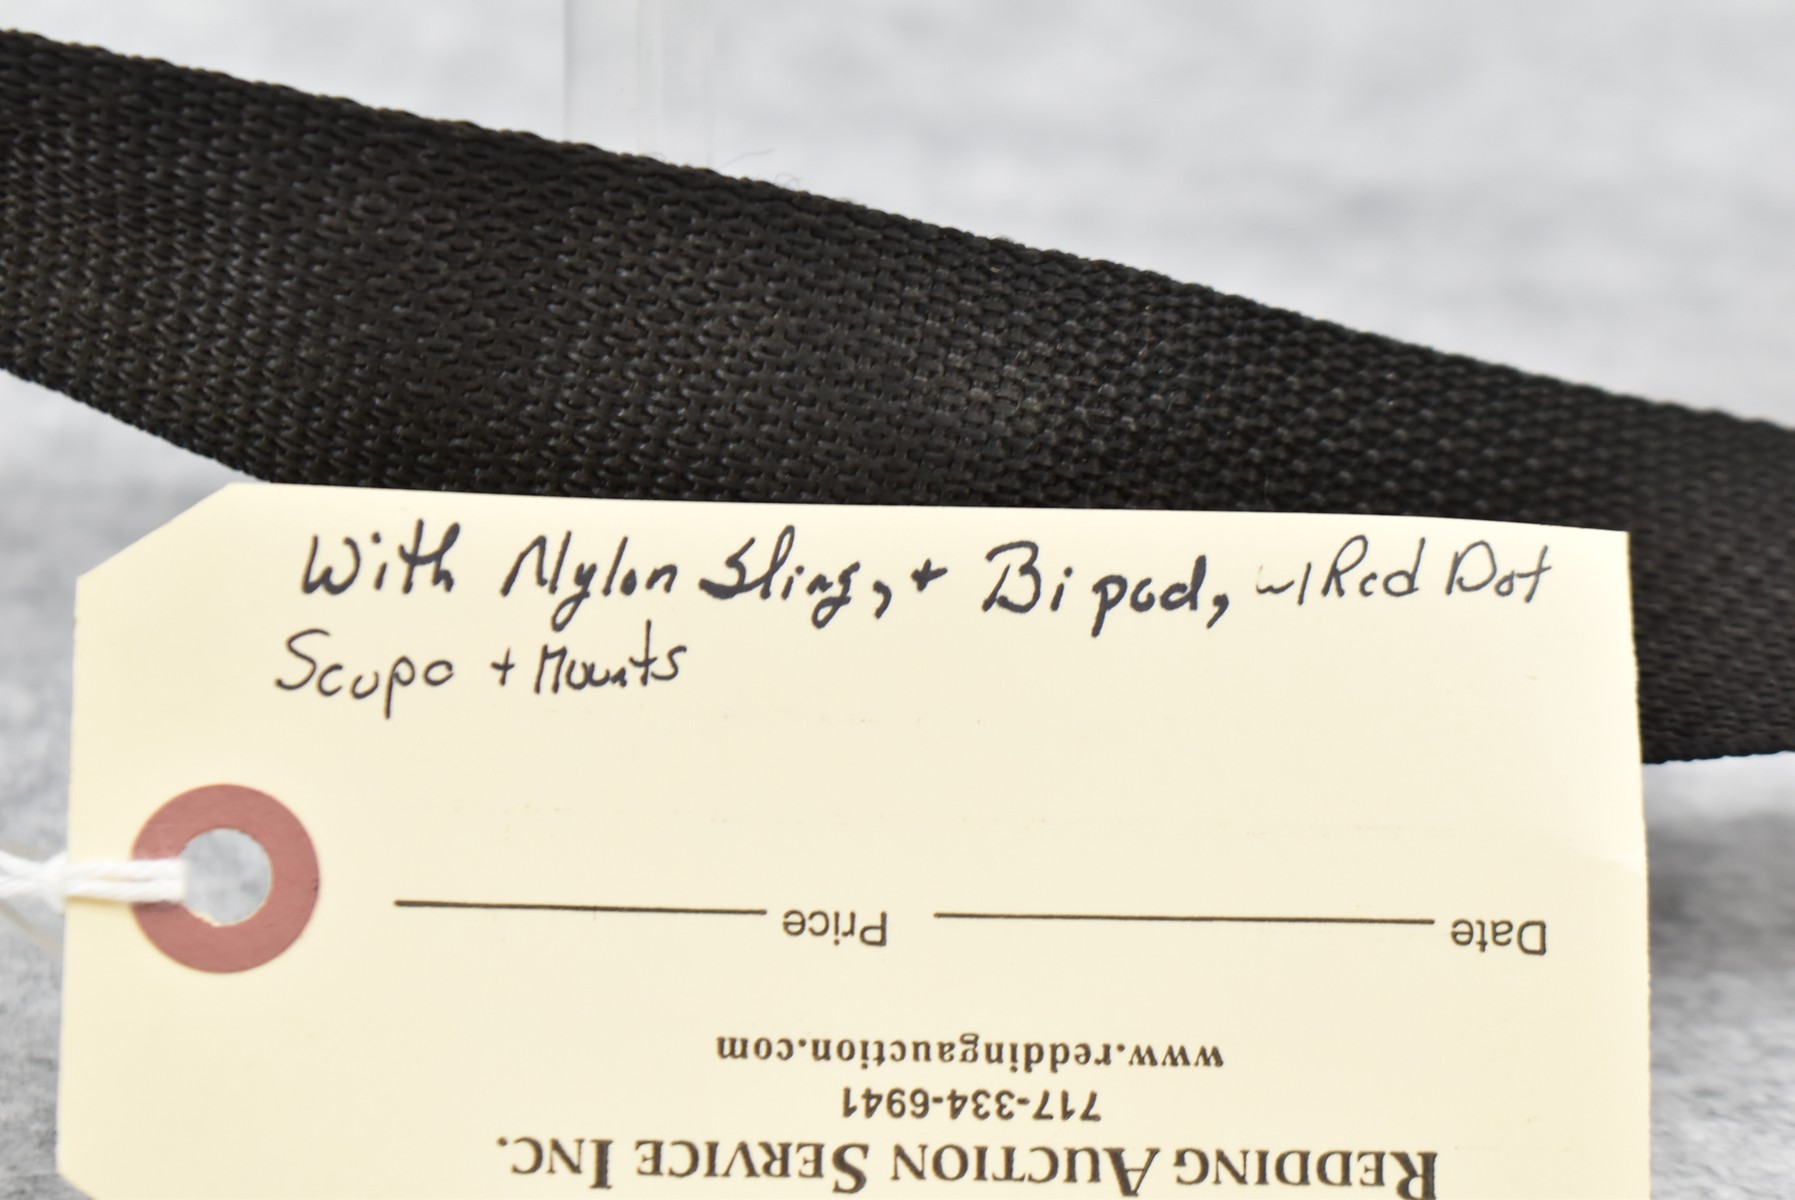 With Nylon Sling, + Bipod, w/ Red Dot
Scope + Mounts
REDDING AUCTION SERVICE INC.
717-334-6941
www.reddingauction.com
Date Price